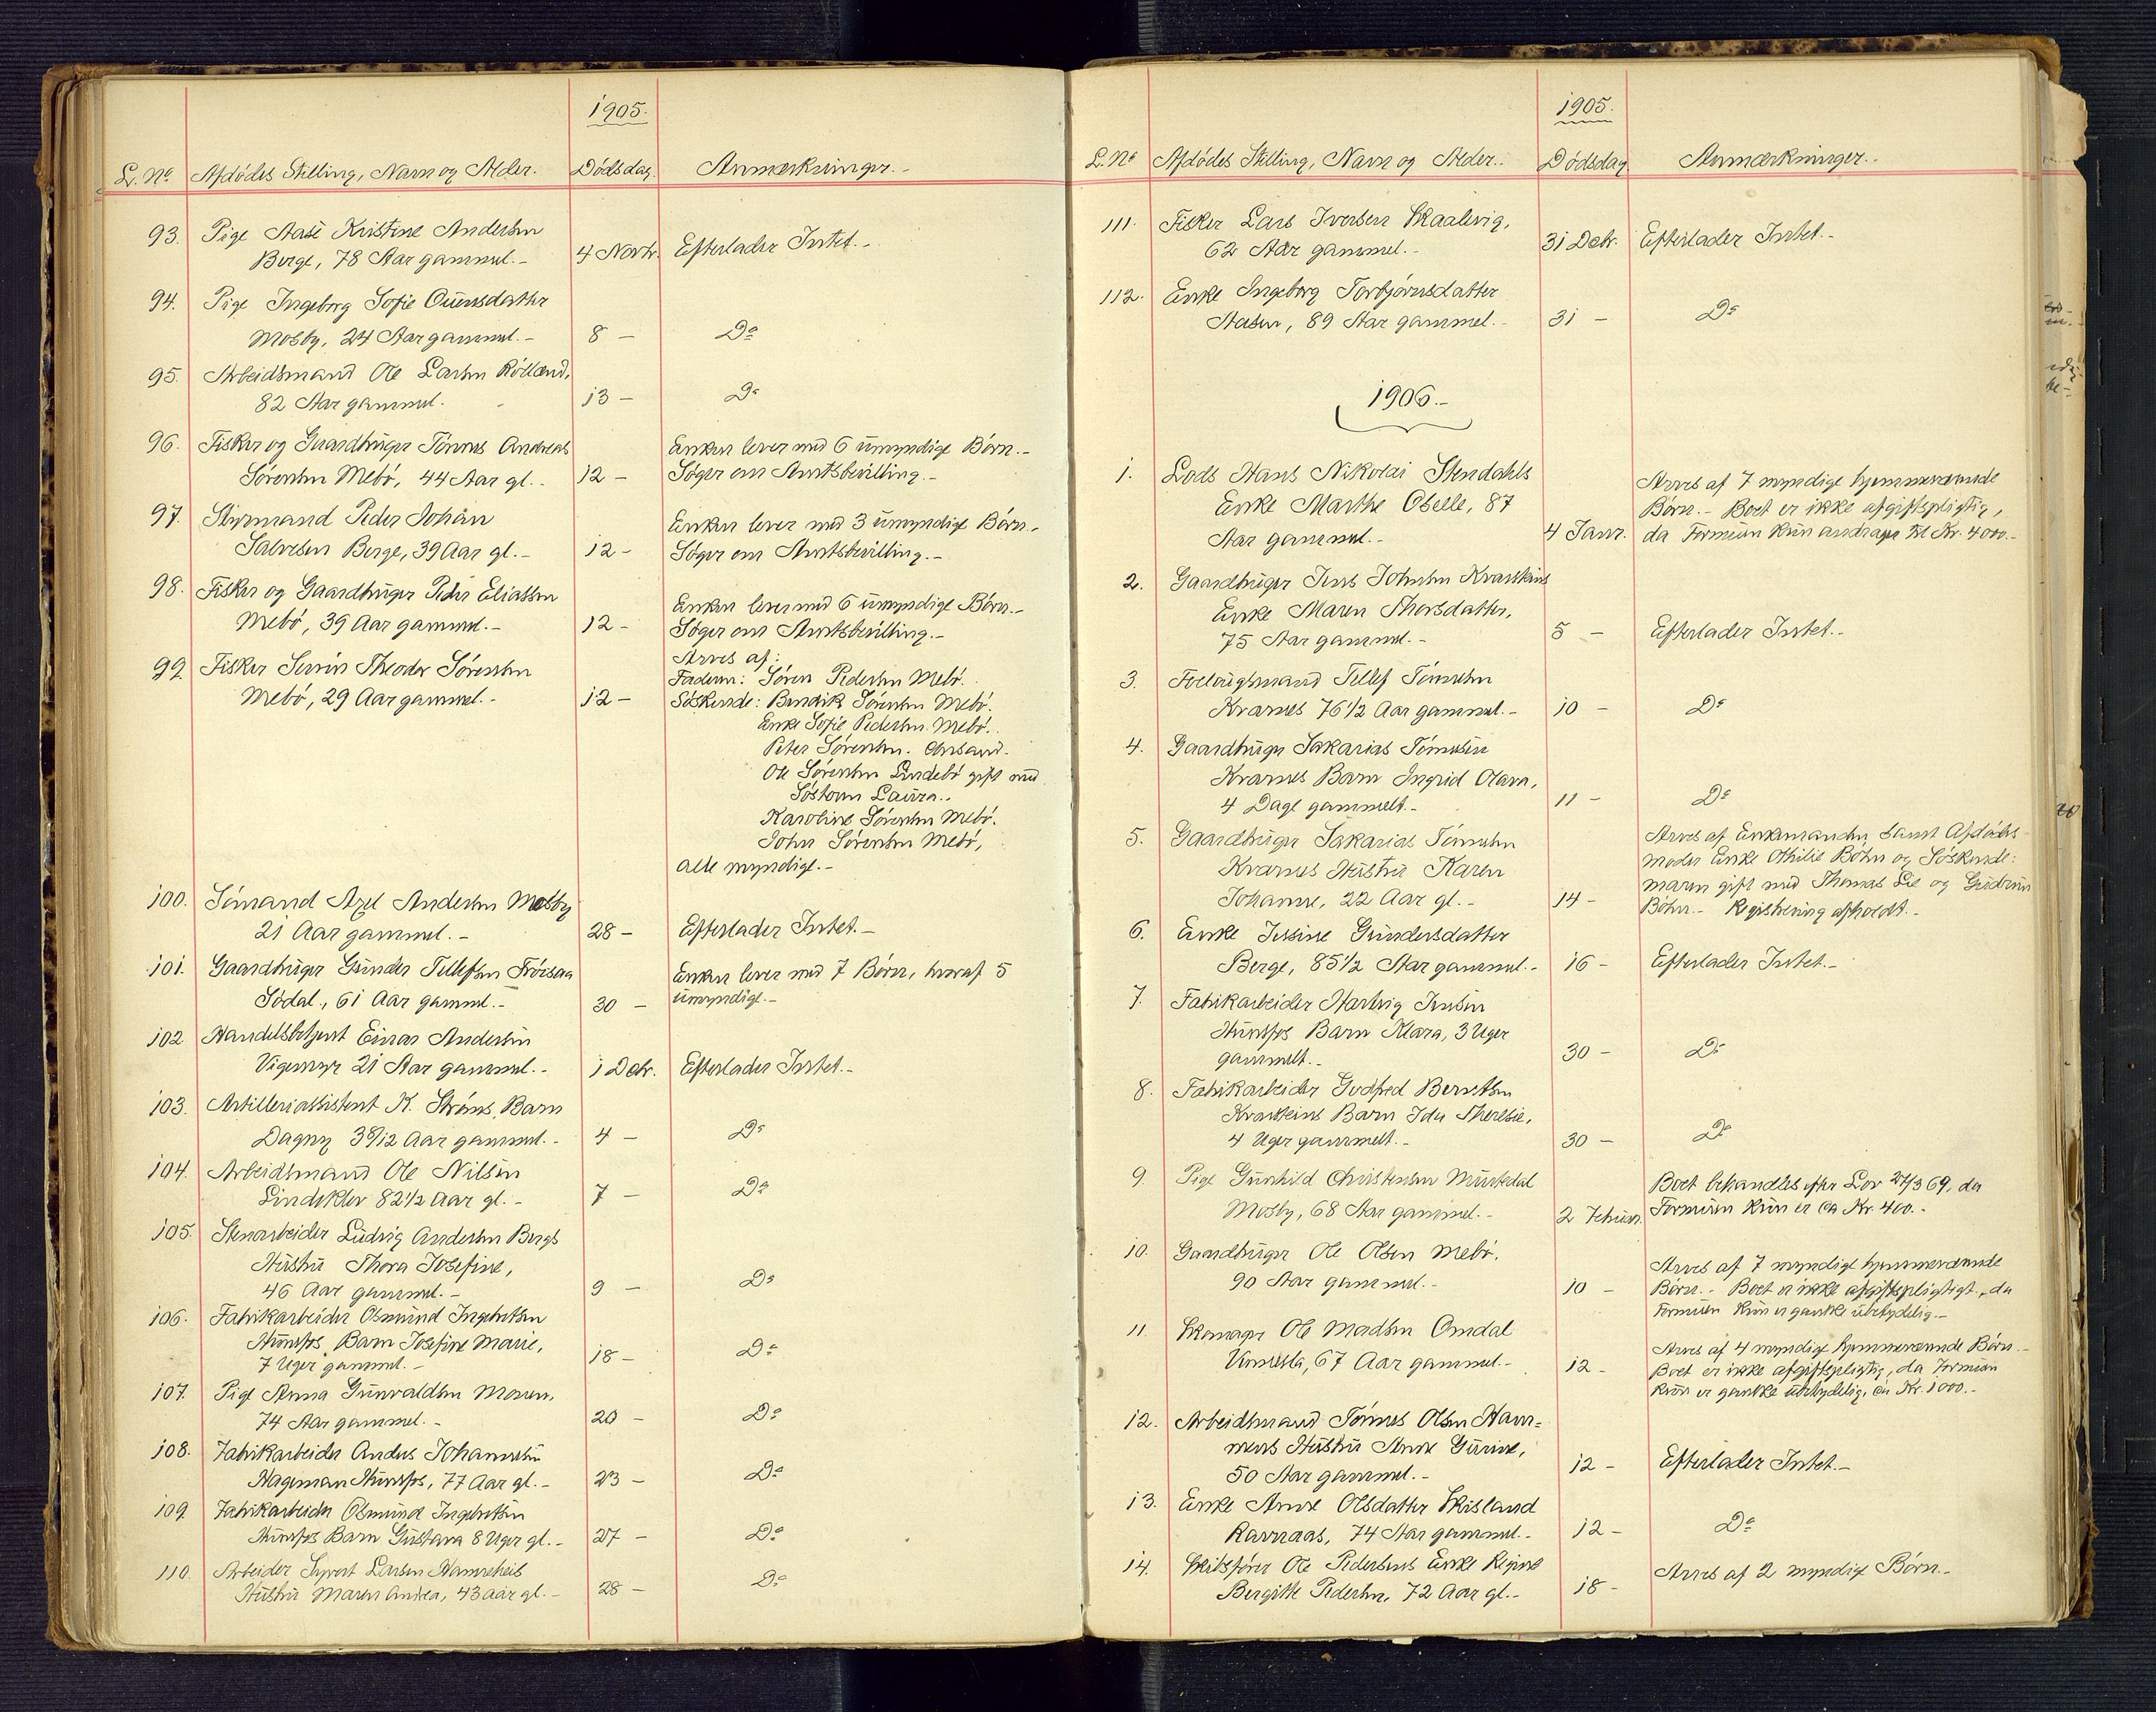 1905.
L. No. Afdödes Stilling, Navn og Alder. Dödsdag. Anmærkninger.
93. Pige Aase Kristine Andersen
Berge, 78 Aar gammel. 4 Novbr. Efterlader Intet.
94. Pige Ingeborg Sofie Ouensdatter
Mosby, 24 Aar gammel. 8 – Do
95. Arbeidsmand Ole Larsen Rölland,
82 Aar gammel. 13 – Do
96. Fisker og Gaardbruger Tönnes Andreas Enken lever med 6 umyndige Börn.
Sörensen Mebö, 44 Aar gl. 12 – Söger om Amtsbevilling.
97. Styrmand Peder Johan Enken lever med 3 umyndige Börn.
Salvesen Berge, 39 Aar gl. 12 – Söger om Amtsbevilling.
98. Fisker og Gaardbruger Peder Eliassen Enken lever med 6 umyndige Börn.
Mebö, 39 Aar gammel. 12 – Söger om Amtsbevilling.
99. Fisker Serin Theodor Sörensen Arves af:
Faderen: Sören Pedersen Mebö.
Mebö, 29 Aar gammel. 12 – Söskende: Bendik Sörensen Mebö.
Enke Sofie Pedersen Mebö.
Peter Sörensen. Chrsand.
Ole Sörensen Lindebö gift med
Söstern Laura.
Karoline Sörensen Mebö.
John Sörensen Mebö,
alle myndige.
100. Sömand Axel Andersen Mosby
21 Aar gammel. 28 – Efterlader Intet.
101. Gaardbruger Gunder Tellefsen Fröisaa Enken lever med 7 Börn, hvoraf 5
Södal, 61 Aar gammel. 30 – umyndige.
102 Handelsbetjent Einar Andersen
Vigemyr 21 Aar gammel. 1 Debr. Efterlader Intet.
103. Artilleriassistent K. Ströms Barn
Dagny 3 8/12 Aar gammel. 4 – Do
104. Arbeidsmand Ole Nilsen
Lindeklev 82 1/2 Aar gl. 7 – Do
105. Stenarbeider Ludvig Andersen Bergs
Hustru Thora Josefine,
46 Aar gammel. 9 – Do
106. Fabrikarbeider Osmund Ingebretsen
Hunsfos Barn Josefine Marie,
7 Uger gammel. 18 – Do
107. Pige Anna Gunvaldsen Moseren,
74 Aar gammel. 20 – Do
108. Fabrikarbeider Anders Johannesen
Hageman Hunsfos, 77 Aar gl. 23 – Do
109. Fabrikarbeider Osmund Ingebretsen
Hunsfos Barn Gustava 8 Uger gl. 27 – Do
110. Arbeider Syvert Larsen Hamreheis
Hustru Maren Andrea, 43 aar gl. 28 – Do
1905.
L. No. Afdödes Stilling, Navn og Alder. Dödsdag. Anmærkninger.
111. Fisker Lars Iversen Skaalevig,
62 Aar gammel. 31 Debr. Efterlader Intet.
112. Enke Ingeborg Torbjörnsdatter
Aasen, 89 Aar gammel. 31 – Do
1906.
1. Lods Hans Nikolai Stendahls Arves af 7 myndige hjemmeværende
Enke Marthe Oselle, 87 Börn. – Boet er ikke afgiftspligtig,
Aar gammel. 4 Janr. da Formuen kun andrager til Kr. 4000.
2. Gaardbruger Jens Johnsen Kvarsteins
Enke Maren Thorsdatter,
75 Aar gammel. 5 – Efterlader Intet.
3. Föderaadsmand Tellef Tönnesen
Kvarnes 76 1/2 Aar gammel. 10 – Do
4. Gaardbruger Sakarias Tönnesen
Kvarnes Barn Ingrid Olava,
4 Dage gammelt. 11 – Do
5. Gaardbruger Sakarias Tönnesen Arves af Enkemanden samt Afdödes
Kvarnes Hustru Karen Moder Enke Othilie Böhn og Söskende:
Johanne, 22 Aar gl. 14 – Maren gift med Thomas Lie og Gudrun
Böhn. – Registrering afholdt.
6. Enke Jessine Gundersdatter
Berge, 85 1/2 Aar gammel. 16 – Efterlader Intet.
7. Fabrikarbeider Hartvig Jensen
Hunsfos Barn Klara, 3 Uger
gammelt. 30 – Do
8. Fabrikarbeider Godfred Berntsen
Kvarsteins Barn Ida Theresie,
4 Uger gammelt. 30 – Do
9. Pige Gunhild Christensen Mustedal Boet behandles efter Lov 27/3 69, da
Mosby, 68 Aar gammel. 2 Februar. Formuen kun er ca Kr. 400.
10. Gaardbruger Ole Olsen Mebö. Arves af 7 myndige hjemmeværende
90 Aar gammel. 10 – Börn. – Boet er ikke afgiftspligtigt, da
Formuen kun er ganske ubetydelig.
11. Skomager Ole Madsen Omdal Arves af 4 myndige hjemmeværende Börn.
Vennesla, 67 Aar gammel. 12 – Boet er ikke afgiftspligtig, da Formuen
kun er ganske ubetydelig, ca Kr. 1000.
12. Arbeidsmand Tönnes Olsen Ham=
mers Hustru Anne Gurine,
50 Aar gammel. 12 – Efterlader Intet.
13. Enke Anne Olsdatter Skisland
Ravnaas, 74 Aar gammel. 12 – Do
14. Skibsförer Ole Pedersens Enke Regine
Bergitte Pedersen, 72 Aar gl. 18 – Arves af 2 myndige Börn.